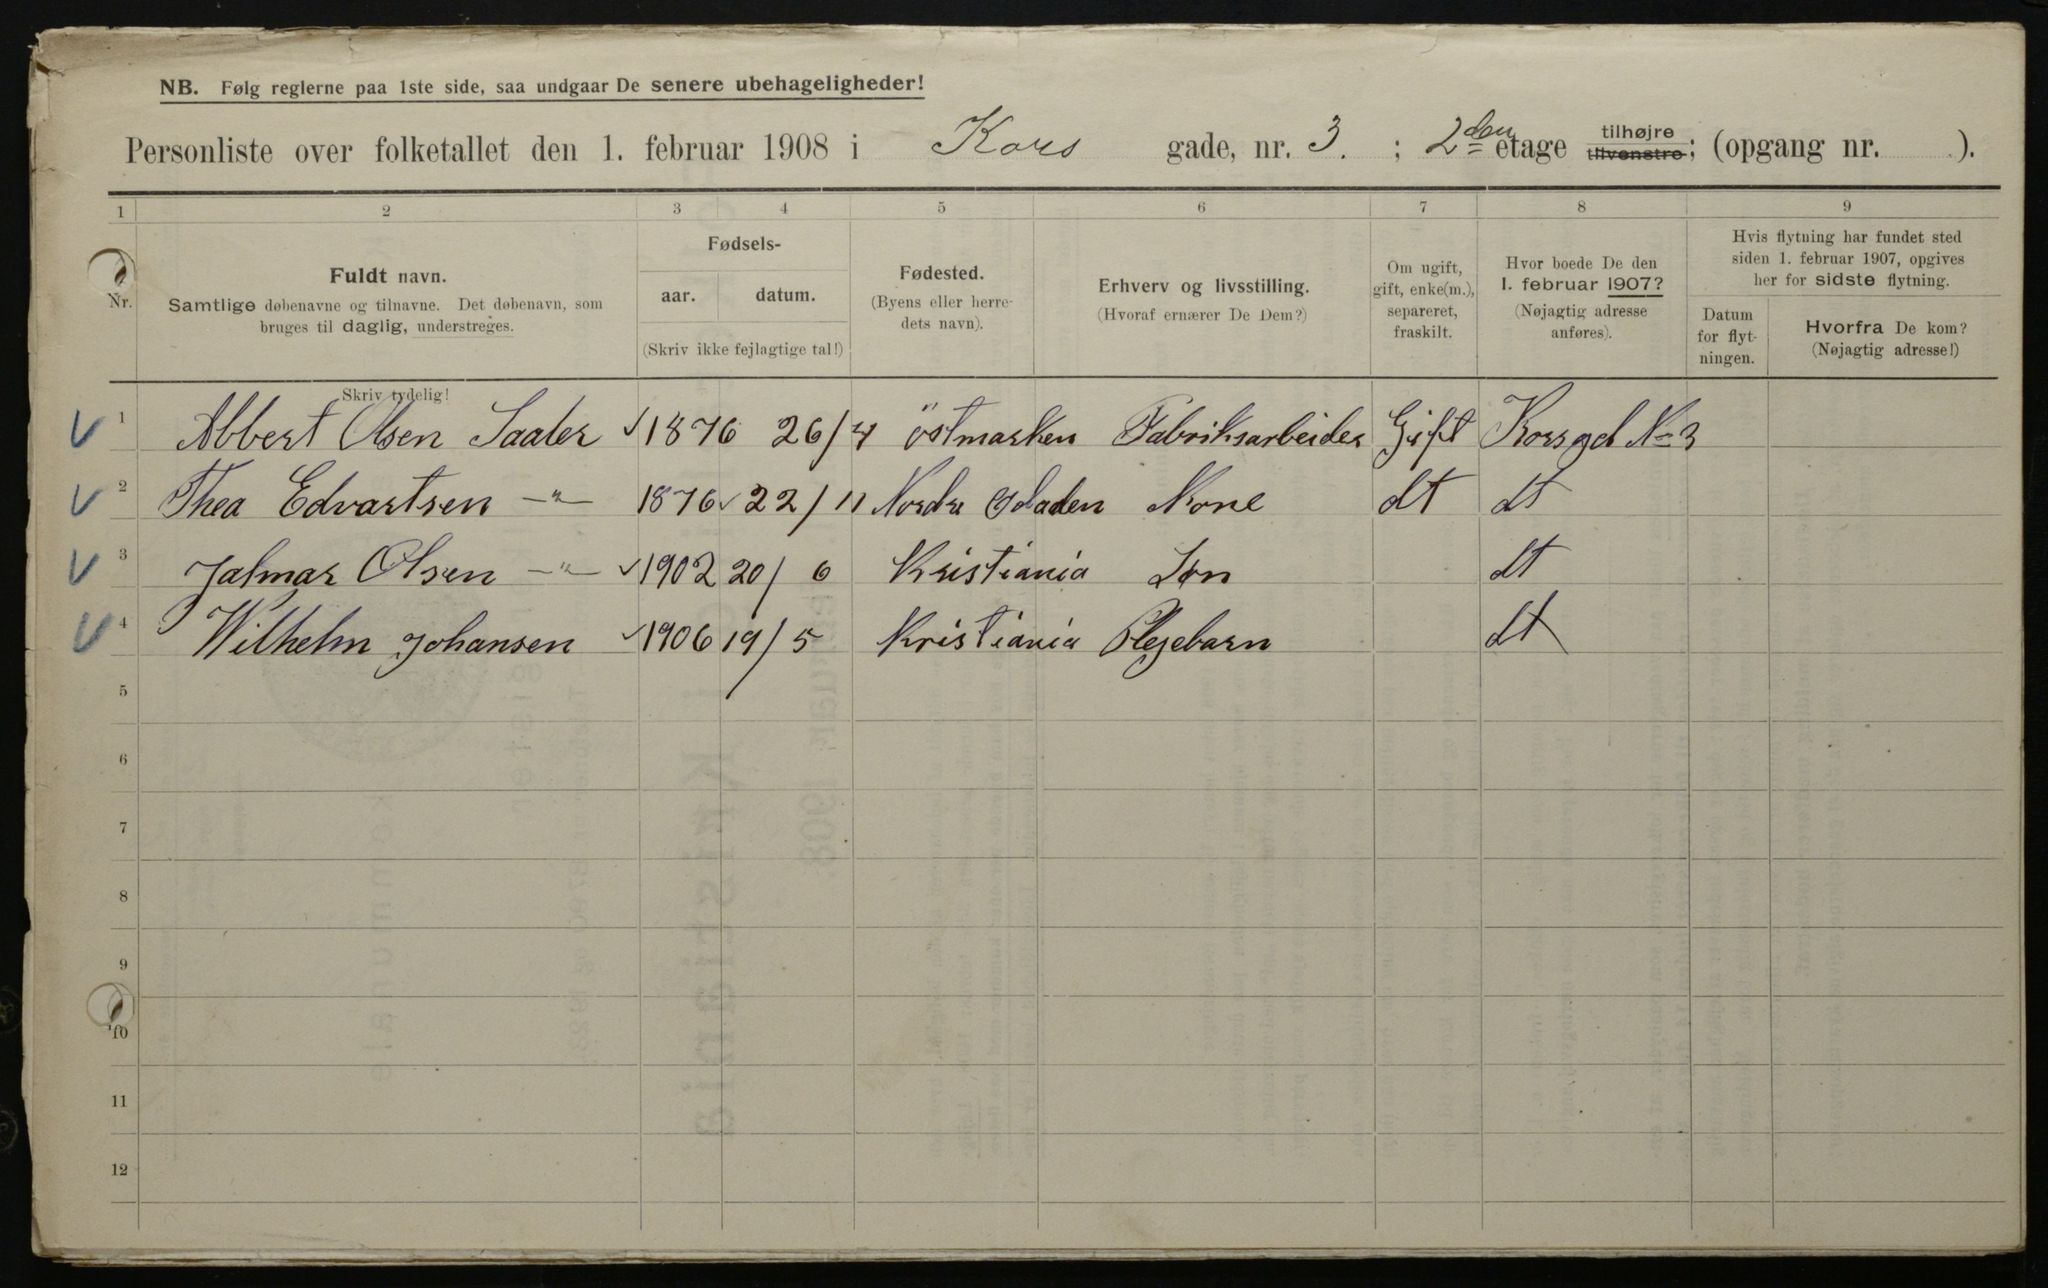 NB. Følg reglerne paa 1ste side, saa undgaar De senere ubehageligheder!
Personliste over folketallet den 1. februar 1908 i Kors gade, nr. 3. ; 2den etage tilhøjre tilvenstre; (opgang nr. ).
1 2 3 4 5 6 7 8 9
Nr.
Fuldt navn.
Samtlige døbenavne og tilnavne. Det døbenavn, som
bruges til daglig, understreges.
Skriv tydelig!
Fødsels-
aar. datum.
(Skriv ikke fejlagtige tal!)
Fødested.
(Byens eller herre-
dets navn).
Erhverv og livsstilling.
(Hvoraf ernærer De Dem?)
Om ugift,
gift, enke(m.),
separeret,
fraskilt.
Hvor boede De den
1. februar 1907?
(Nøjagtig adresse
anføres).
Hvis flytning har fundet sted
siden 1. februar 1907, opgives
her for sidste flytning.
Datum
for flyt-
ningen.
Hvorfra De kom?
(Nøjagtig adresse!)
1 Abbert Olsen Saaler 1876 26/4 östmarken Fabriksarbeider Gift Korsgd No 3
2 Thea Edvartsen -"- 1876 22/11 Nordre Odalen Kone dt dt
3 Jalmar Olsen -"- 1902 20/6 Kristiania Søn dt
4 Wilhelm Johansen 1906 19/5 Kristiania Plejebarn dt
5
6
7
8
9
10
11
12